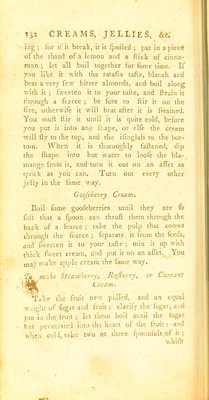 132 CREAMS, JELLIES, &c.
ing; for if it break, it is spoiled; put in a piece
of the rhind of a lemon and a stick of cinna-
mon; let all boil together for some time. If
you like it with the ratafia taste, blanch and
beat a very few bitter almonds, and boil along
with it; sweeten it to your taste, and strain it
through a searce; be sure to stir it on the
fire, otherwise it will brat after it is strained.
You must stir it until it is quite cold, before
you put it into any shape, or else the cream
will fly to the top, and the isinglass to the bot-
tom. When it is thoroughly fastened, dip
the shape into hot water to loose the bla-
mange from it, and turn it out on an asset as
quick as you can. Turn out every other
jelly in the same way.
Gooseberry Cream.
Boil some gooseberries until they are so
soft that a spoon can thrust them through the
back of a searce; take the pulp that comes
through the searce; separate it from the seeds,
and sweeten it to your taste; mix it up with
thick sweet cream, and put it on an asset. You
may make apple cream the same way.
To make Strawberry, Raspberry, or Currant
Cream.
Take the fruit new pulled, and an equal
weight of sugar and fruit; clarify the sugar, and
put in the fruit; let them boil until the sugar
has penetrated into the heart of the fruit; and
when cold, take two or three spoonfuls of it;
whisk